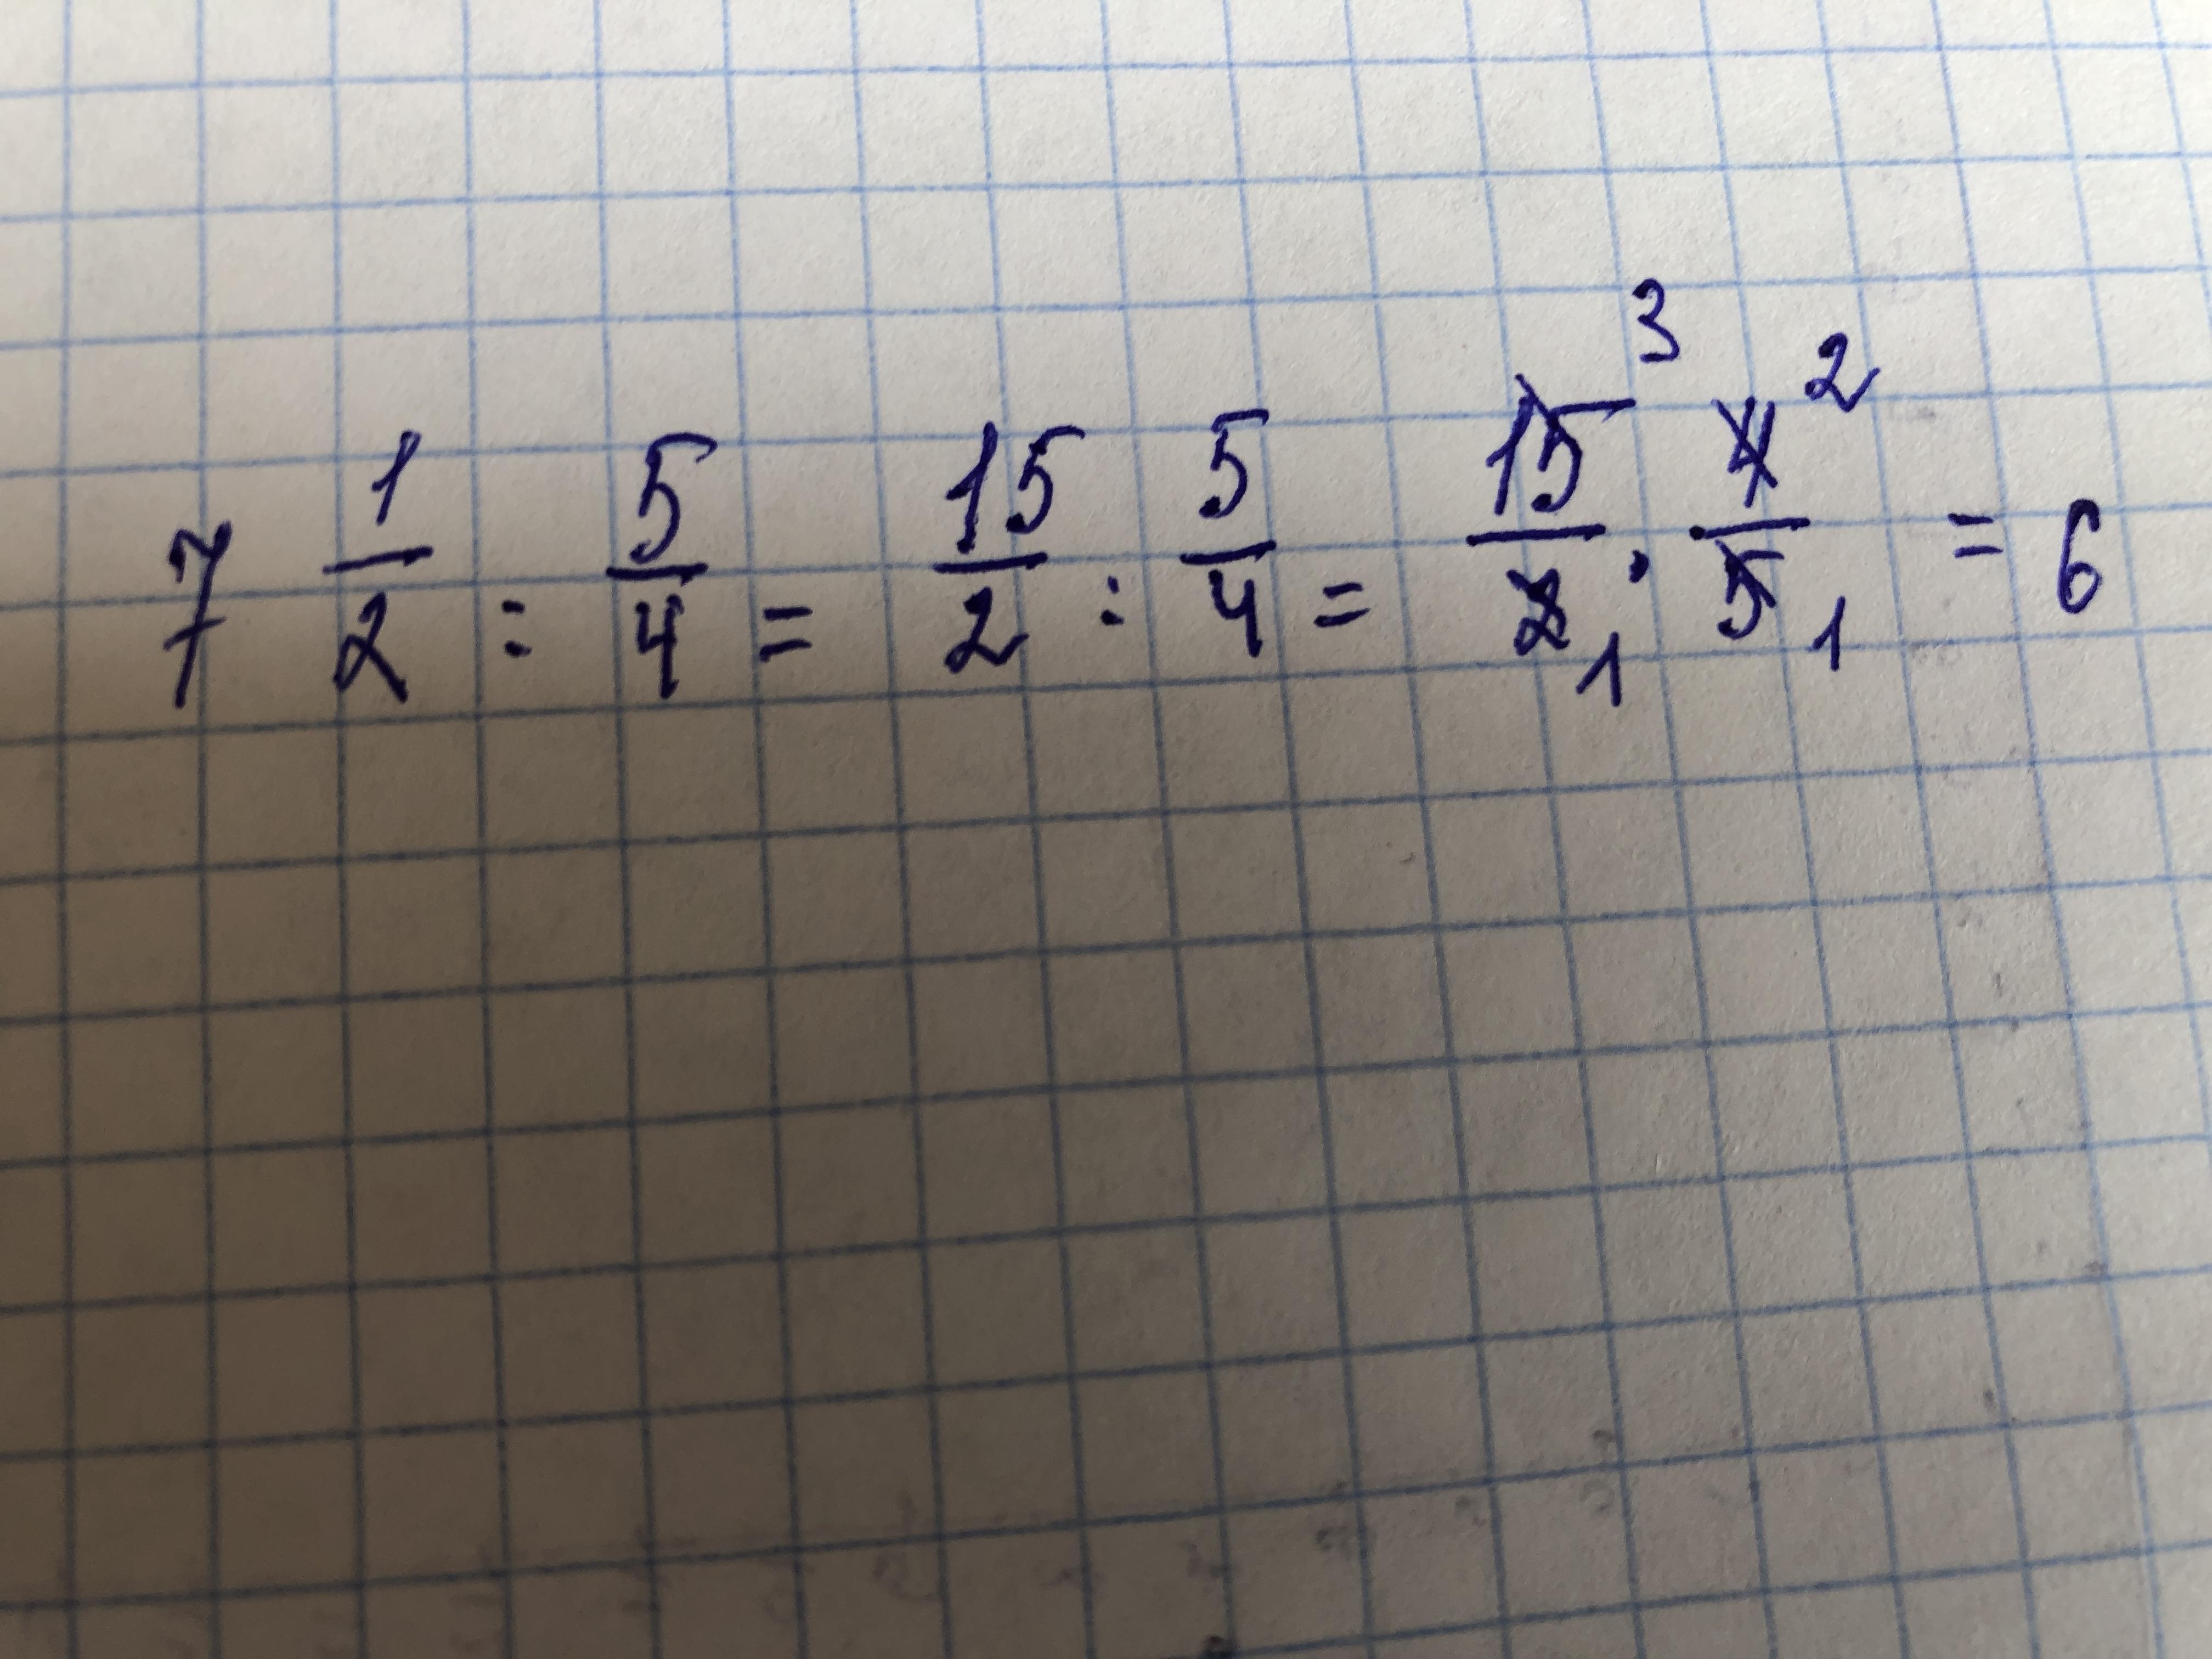 7 1/2 : 5/4 = 15/2 : 5/4 = 15 3/2 1 · 4 2/5 1 = 6